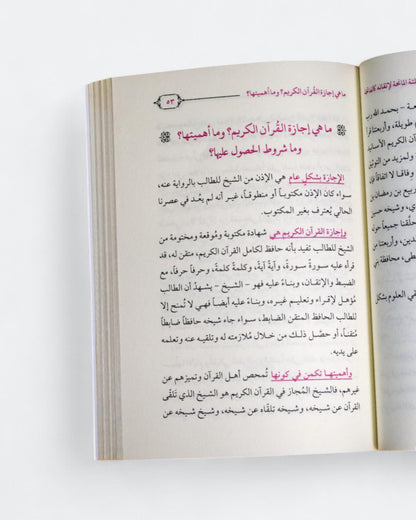 ما هي إجازة القُرآن الكريم؟ وما أهميتها؟
٥٣
ما هي إجازة القُرآن الكريم؟ وما أهميتها؟
وما شروط الحصول عليها؟
الإجازة بشكلٍ عام هي الإذن من الشيخ للطالب بالرواية عنه،
سواء كان الإذن مكتوباً أو منطوقاً، غير أنه لم يعد في عصرنا
الحالي يُعترف بغير المكتوب.
وإجازة القرآن الكريم هي شهادة مكتوبة ومُوقعة ومختومة من
الشيخ للطالب تفيد بأنه حافظ لكامل القرآن الكريم، متقن له، قد
قرأه عليه سورةً سورةً، وآيةً آيةً، وكلمةً كلمةً، وحرفاً حرفاً، مع
الضبط والإتقان، وبناءً عليه فهو – الشيخ – يشهدُ أن الطالب
مُؤهل لإقراء وتعليم غيره، وبناءً عليه أيضاً فهي لا تُمنح إلا
للطالب الحافظ المتقن الضابط، سواء جاء شيخه حافظاً ضابطاً
مُتقناً، أو حصَّل ذلك من خلال مُلازمته له وتلقيه عنه وتعلمه
على يديه.
وأهميتها تكمن في كونها تُمحص أهل القرآن وتميزهم عن
غيرهم، فالشيخ المُجاز في القرآن الكريم هو الشيخ الذي تَلقّى
القرآن عن شيخه، وشيخه تلقّاه عن شيخه، وشيخ شيخه عن
لإتقانه كالفاتحة
– بحمد الله رب
طويلة، وأربعتنا
الكريم الأساتذة
ولمزيد من التوثيق
وفاقا لا اتفاقا
بن رمضان بن
وشيخه حسين
جميعاً حول
وأربعتنا
حافظة
العلوم بشكل